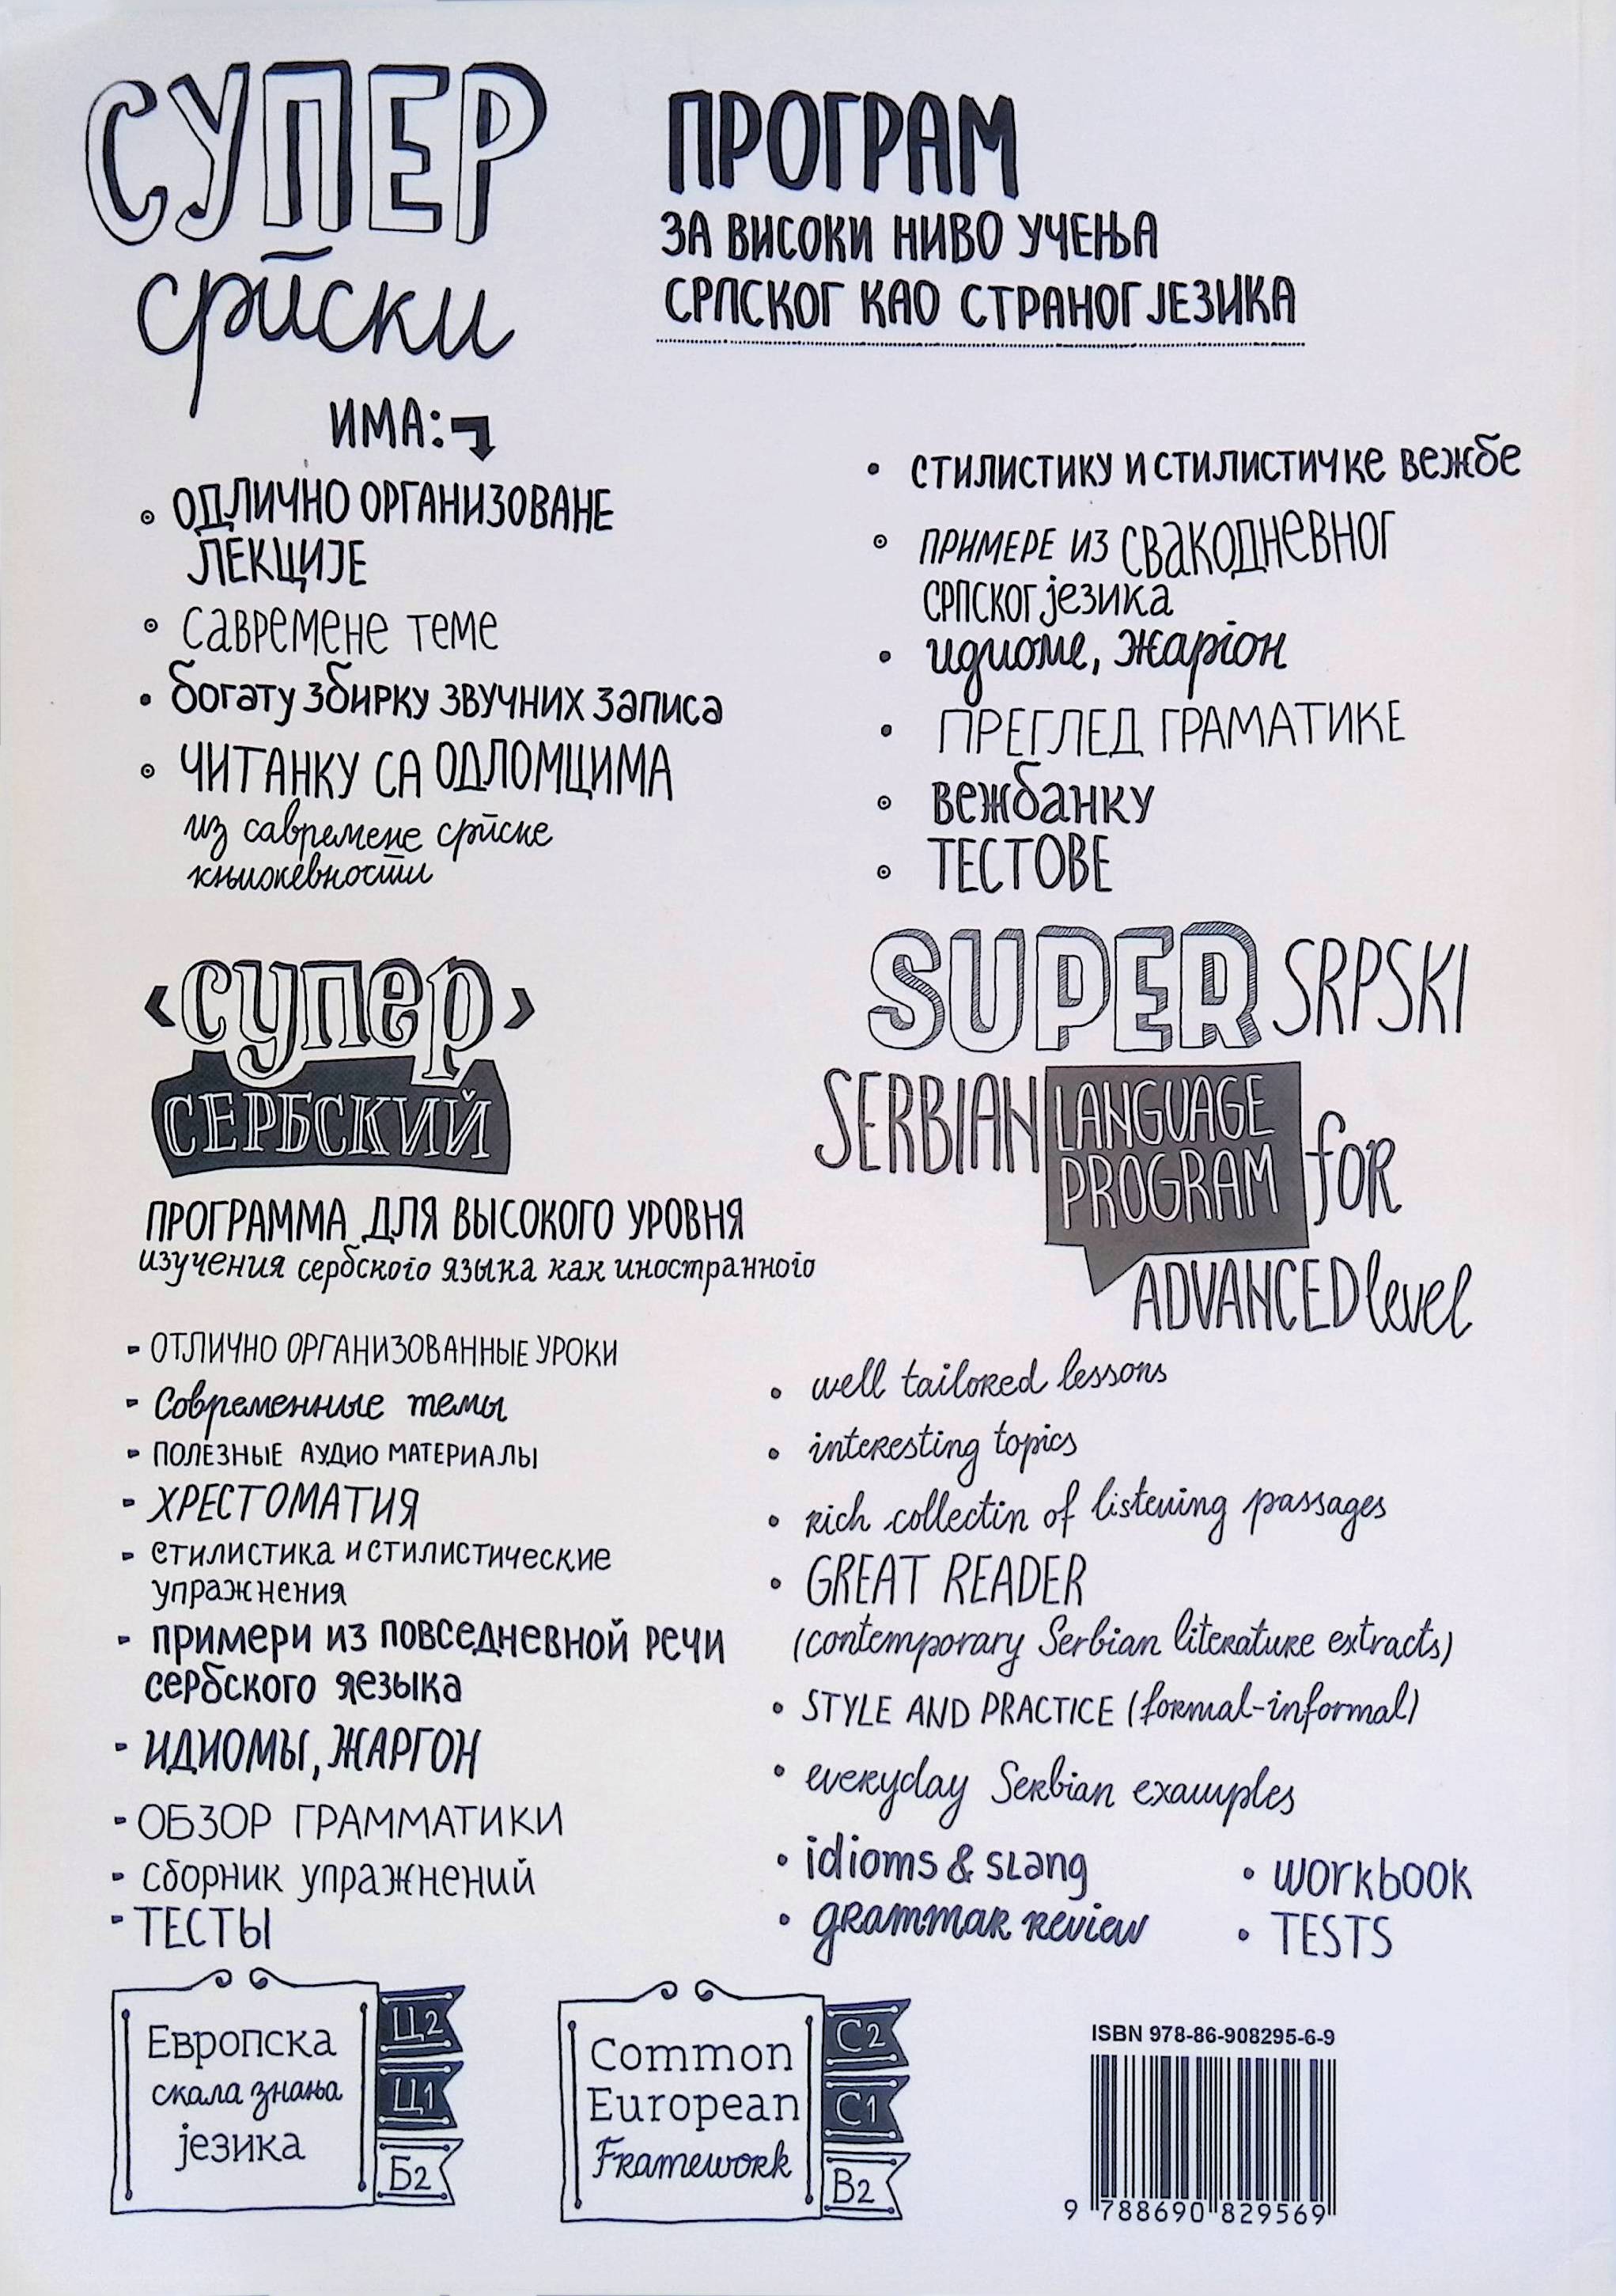 СУПЕР
српски
ПРОГРАМ
ЗА ВИСОКИ НИВО УЧЕЊА
СРПСКОГ КАО СТРАНОГ ЈЕЗИКА
ИМА:
ОДЛИЧНО ОРГАНИЗОВАНЕ
ЛЕКЦИЈЕ
савремене теме
богату збирку звучних записа
ЧИТАНКУ СА ОДЛОМЦИМА
из савремене српске
књижевности
стилистику и стилистичке вежбе
ПРИМЕРЕ ИЗ СВАКОДНЕВНОГ
СРПСКОГ језика
идиоме, жаргон
ПРЕГЛЕД ГРАМАТИКЕ
вежбанку
ТЕСТОВЕ
‹супер›
СЕРБСКИЙ
ПРОГРАММА ДЛЯ ВЫСОКОГО УРОВНЯ
изучения сербского языка как иностранного
- ОТЛИЧНО ОРГАНИЗОВАННЫЕ УРОКИ
- Современные темы
- ПОЛЕЗНЫЕ АУДИО МАТЕРИАЛЫ
- ХРЕСТОМАТИЯ
- стилистика и стилистические
упражнения
- примери из повседневной речи
сербского яезыка
- ИДИОМЫ, ЖАРГОН
- ОБЗОР ГРАММАТИКИ
- сборник упражнений
- ТЕСТЫ
SUPER SRPSKI
SERBIAN LANGUAGE
PROGRAM for
ADVANCED level
well tailored lessons
interesting topics
rich collectin of listening passages
GREAT READER
(contemporary Serbian literature extracts)
STYLE AND PRACTICE (formal-informal)
everyday Serbian examples
idioms & slang
grammar review
workbook
TESTS
Европска
скала знања
језика
Ц2
Ц1
Б2
Common
European
Framework
C2
C1
B2
ISBN 978-86-908295-6-9
9 788690 829569